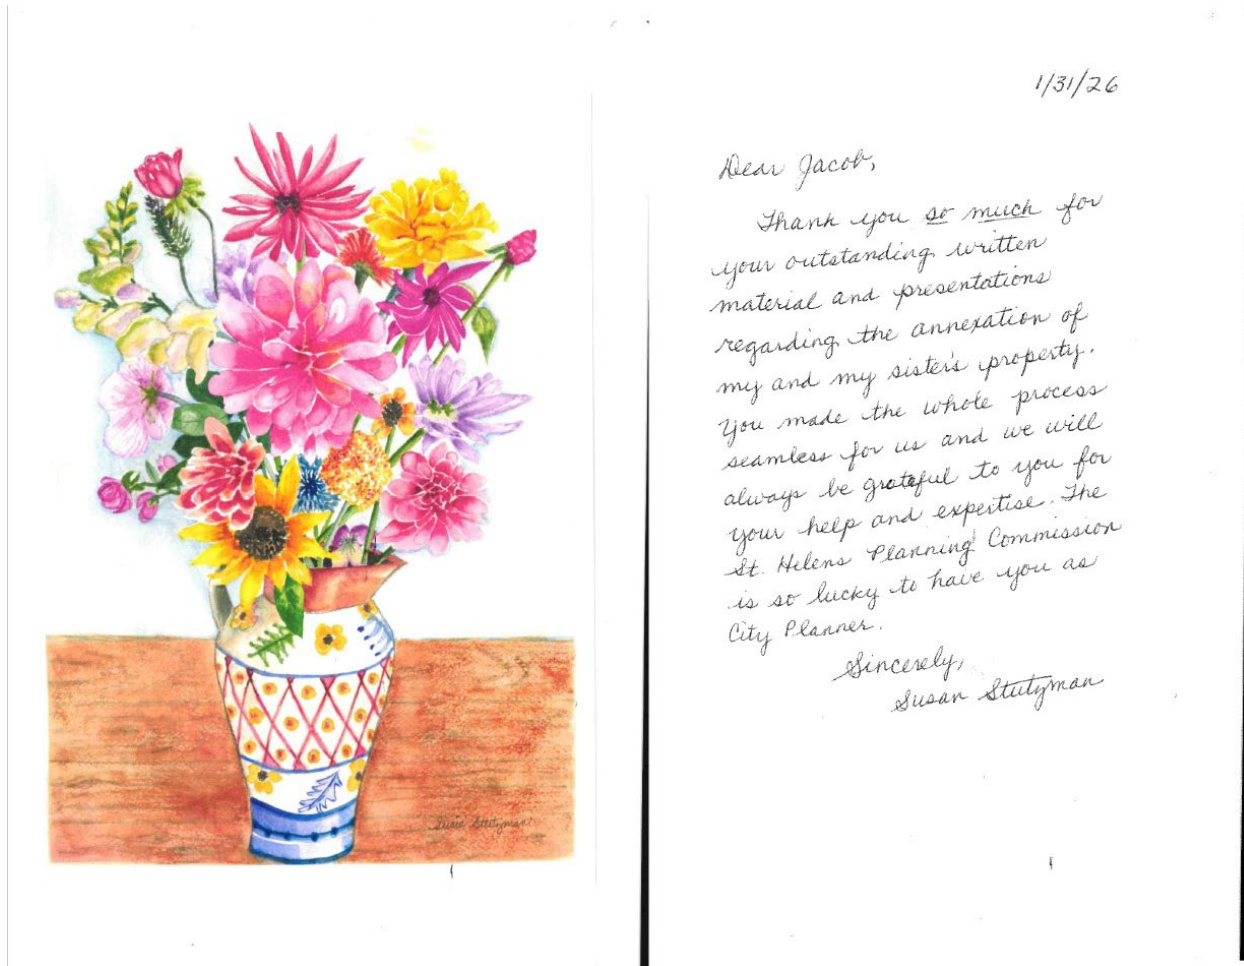 Susie Stutzman
1/31/26
Dear Jacob,
Thank you so much for
your outstanding written
material and presentations
regarding the annexation of
my and my sister's property.
You made the whole process
seamless for us and we will
always be grateful to you for
your help and expertise. The
St. Helens Planning Commission
is so lucky to have you as
City Planner.
Sincerely,
Susan Stutzman